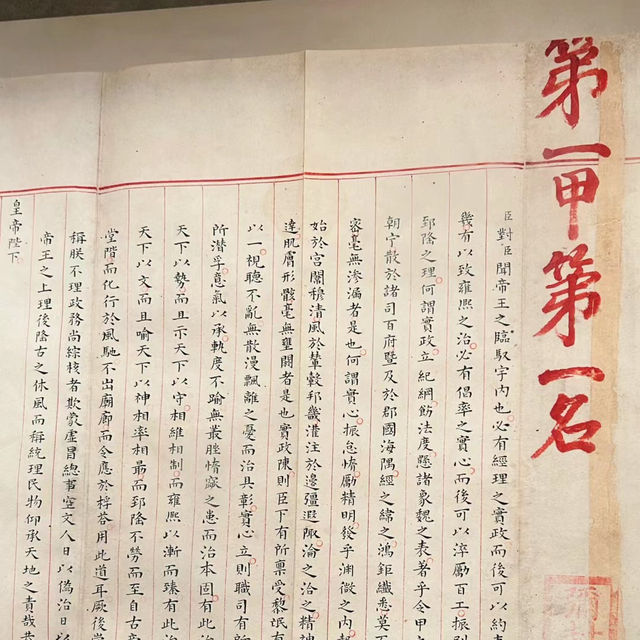 第一甲第一名
臣對臣聞帝王之臨馭宇內也必有經理之實政而後可以約束
幾有以致雍熙之治必有倡率之實心而後可以淬勵百工振
郅隆之理何謂實政立紀綱飭法度懸諸象魏之表著乎令甲
朝宁散於諸司百府暨及於郡國海隅經之緯之鴻鉅纖悉莫
密毫無滲漏者是也何謂實心振怠惰勵精明發乎淵微之內
始於宮闈穆清風於輦轂邦畿灌注於邊疆遐陬淪之洽之精神
達肌膚形骸毫無壅閼者是也實政陳則臣下有所稟受黎氓有
以一視聽不亂無散漫飄離之憂而治具彰實心立則職司有
所潛孚意氣以承軌度不踰無叢脞惰窳之患而治本固有此
天下以勢而且示天下以守相維相制而雍熙以漸而臻有此
天下以文而且喻天下以神相率相勗而郅隆不勞而至自古
堂階而化行於風馳不出廟廊而令應於桴答用此道耳厥後
稱朕不理政務尚綜核者欺蒙虛冒總事空文人日以偽治日以
帝王之上理後隆古之休風而稱統理民物仰承天地之責哉
皇帝陛下